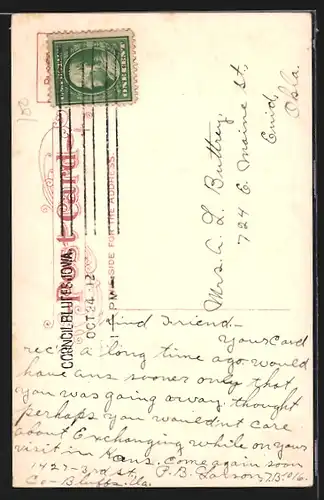 ONE CENT
COUNCIL BLUFFS, IOWA.
OCT 24 12
PM
Post Card
SIDE FOR THE ADDRESS.
Mrs. A. L. Buttrey,
724 E. Maine St.,
Enid,
Okla.
Kind Friend – Your card
rec'd a long time ago would
have ans sooner only that
you was going away, thought
perhaps you wouldn't care
about Exchanging while on your
visit in Kans. Come again soon
1427-3rd St., P.B.
Co-Bluffs, Ia.